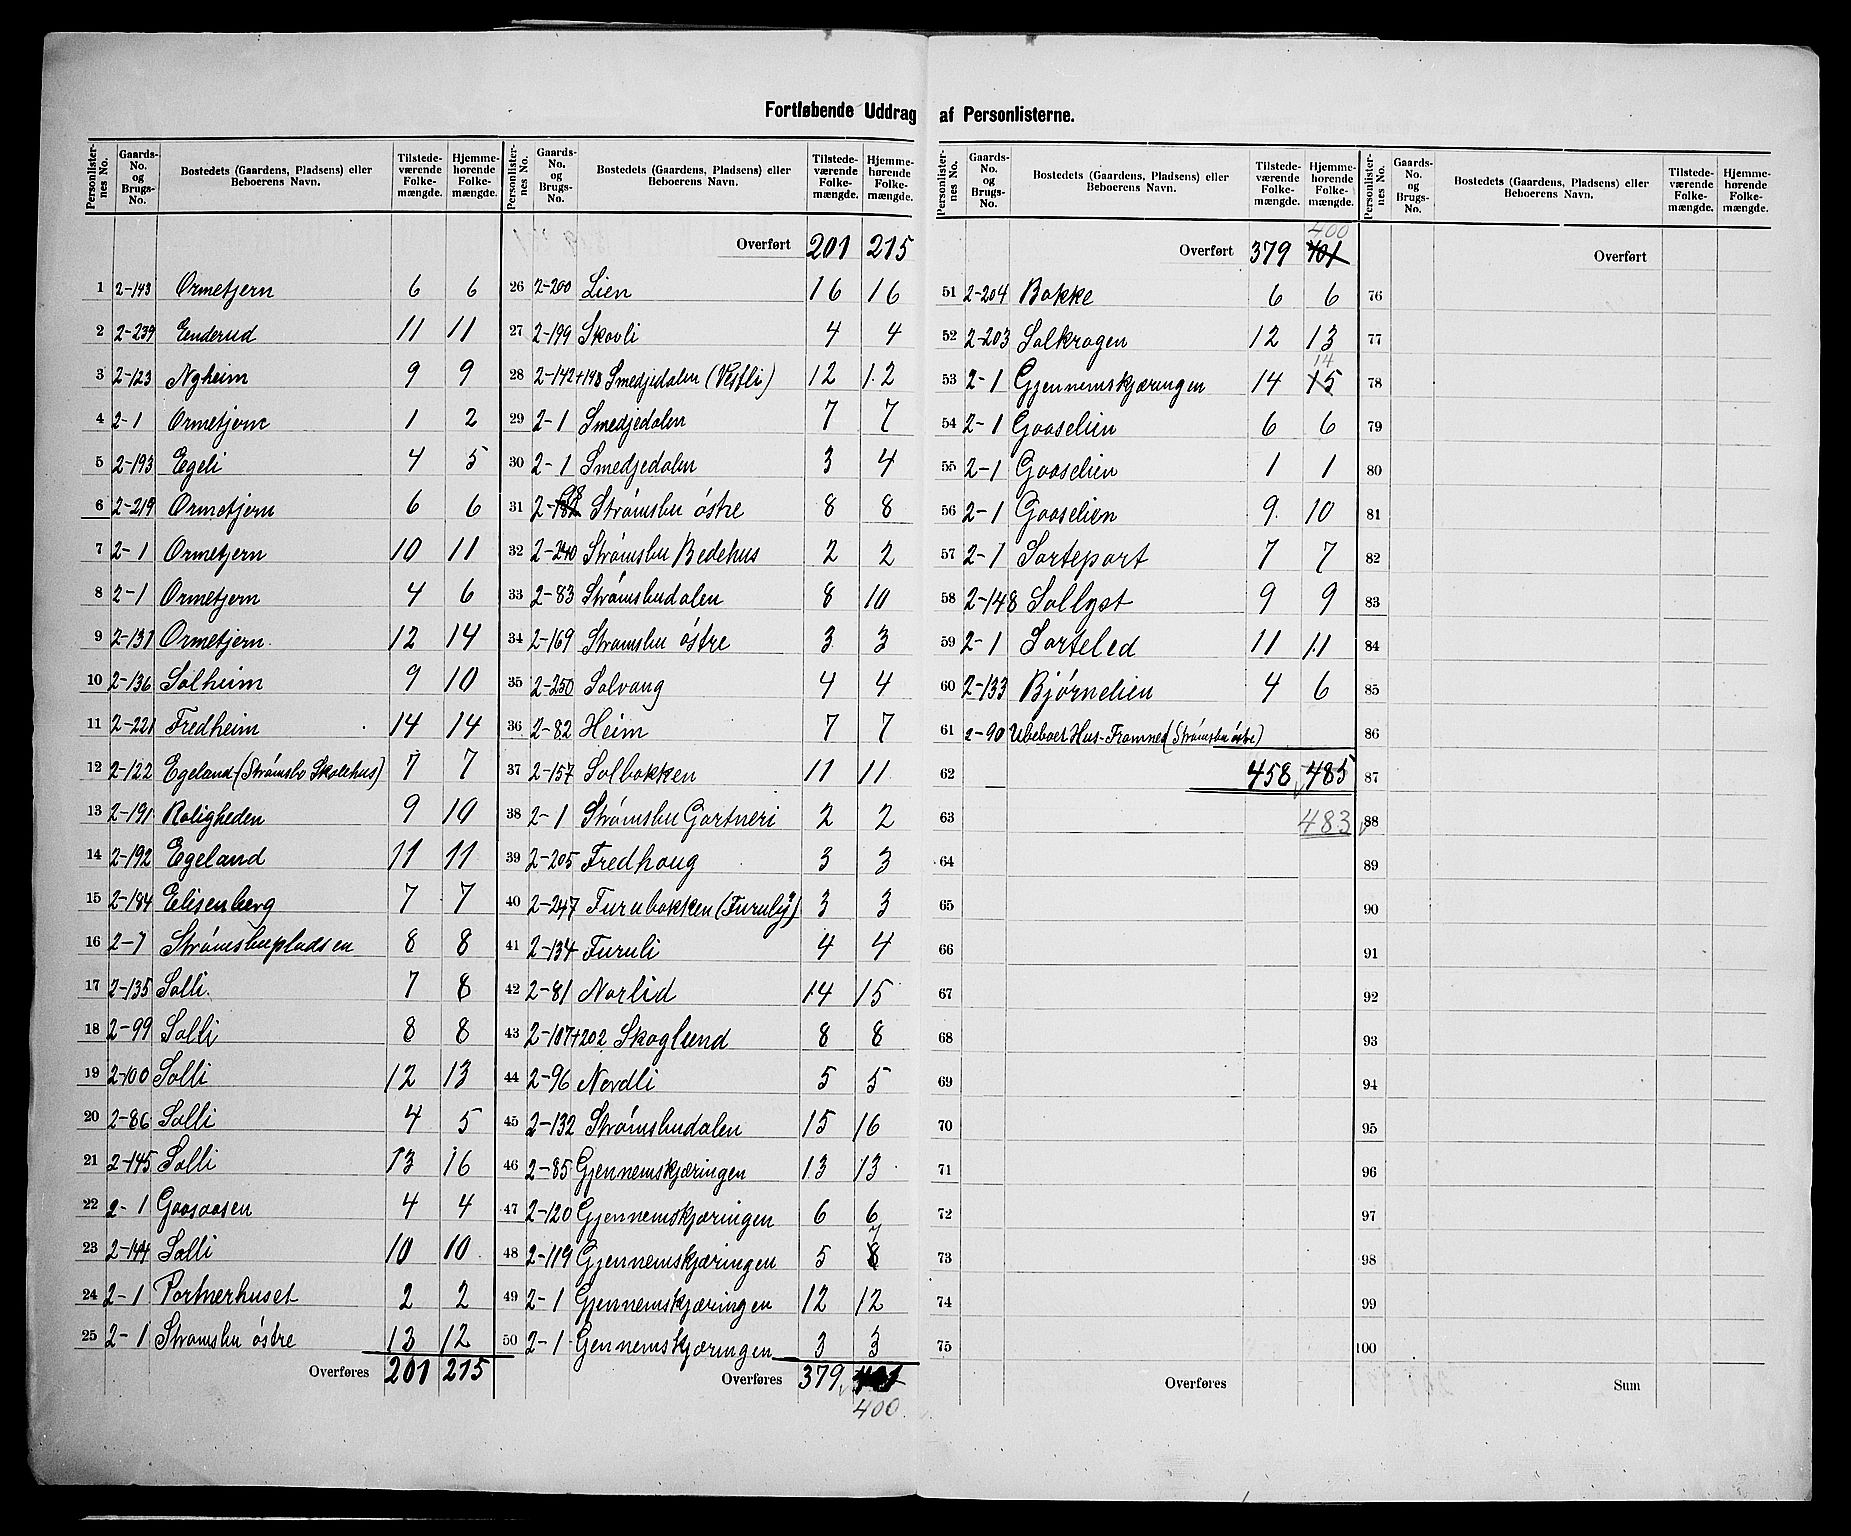 Fortløbende Uddrag af Personlisterne.
Personlister-nes No. Gaards-No. og Brugs-No. Bostedets (Gaardens, Pladsens) eller Beboerens Navn. Tilstede-værende Folke-mængde. Hjemme-hørende Folke-mængde.
1 2-143 Ormetjern 6 6
2 2-239 Enderud 11 11
3 2-123 Nyheim 9 9
4 2-1 Ormetjern 1 2
5 2-193 Egeli 4 5
6 2-219 Ormetjern 6 6
7 2-1 Ormetjern 10 11
8 2-1 Ormetjern 4 6
9 2-131 Ormetjern. 12 14
10 2-136 Solheim 9 10
11 2-221 Fredheim 14 14
12 2-122 Egeland (Strømsbo Skolehus) 7 7
13 2-191 Roligheden 9 10
14 2-192 Egeland 11 11
15 2-184 Elisenberg 7 7
16 2-1 Strømsbupladsen 8 8
17 2-135 Solli. 7 8
18 2-99 Solli 8 8
19 2-100 Solli 12 13
20 2-86 Solli 4 5
21 2-145 Solli 13 16
22 2-1 Gaasaasen 4 4
23 2-144 Solli 10 10
24 2-1 Portnerhuset 2 2
25 2-1 Strømsbu østre 13 12
Overføres 201 215
Personlister-nes No. Gaards-No. og Brugs-No. Bostedets (Gaardens, Pladsens) eller Beboerens Navn. Tilstede-værende Folke-mængde. Hjemme-hørende Folke-mængde.
Overført 201 215
26 2-200 Lien 16 16
27 2-199 Skovli 4 4
28 2-142+198 Smedjedalen (Vestli) 12 12
29 2-1 Smedjedalen 7 7
30 2-1 Smedjedalen 3 4
31 2- Strømsbu østre 8 8
32 2-240 Strømsbu Bedehus 2 2
33 2-83 Strømsbudalen 8 10
34 2-169 Strømsbu østre 3 3
35 2-250 Solvang 4 4
36 2-82 Heim 7 7
37 2-157 Solbakken 11 11
38 2-1 Strømsbu Gartneri 2 2
39 2-205 Fredhoug 3 3
40 2-247 Furubakken (Furuly?) 3 3
41 2-134 Furuli 4 4
42 2-81 Norlid 14 15
43 2-107+202 Skoglund 8 8
44 2-96 Nordli 5 5
45 2-132 Strømsbudalen 15 16
46 2-85 Gjennemskjæringen 13 13
47 2-120 Gjennemskjæringen 6 6
48 2-119 Gjennemskjæringen 5 8 7
49 2-1 Gjennemskjæringen 12 12
50 2-1 Gennemskjæringen 3 3
Overføres 379 401
400
Personlister-nes No. Gaards-No. og Brugs-No. Bostedets (Gaardens, Pladsens) eller Beboerens Navn. Tilstede-værende Folke-mængde. Hjemme-hørende Folke-mængde.
400
Overført 379 401
51 2-204 Bakke 6 6
52 2-203 Solkrogen 12 13
53 2-1 Gjennemskjæringen 14 15 14
54 2-1 Gaaselien 6 6
55 2-1 Gaaselien 1 1
56 2-1 Gaaselien 9 10
57 2-1 Sorteport 7 7
58 2-148 Sollyst 9 9
59 2-1 Sorteled 11 11
60 2-133 Bjørnelien 4 6
61 2-90 Ubeboet Hus-Framned (Strømsbu østre)
62 458 485
63 483
64
65
66
67
68
69
70
71
72
73
74
75
Overføres
Personlister-nes No. Gaards-No. og Brugs-No. Bostedets (Gaardens, Pladsens) eller Beboerens Navn. Tilstede-værende Folke-mængde. Hjemme-hørende Folke-mængde.
Overført
76
77
78
79
80
81
82
83
84
85
86
87
88
89
90
91
92
93
94
95
96
97
98
99
100
Sum